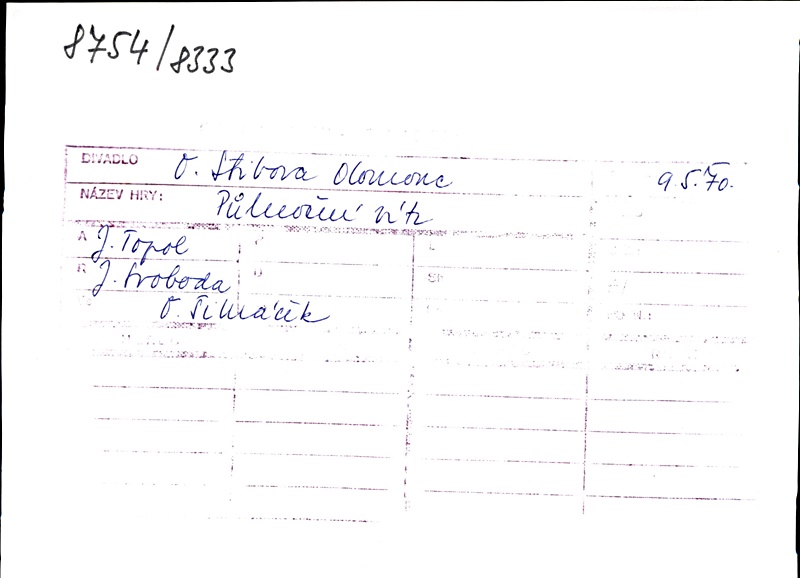 8754/8333
DIVADLO O. Stibora Olomouc 9.5.70.
NÁZEV HRY: Půlnoční vítr
A J. Topol
R J. Svoboda
O. Šimáček